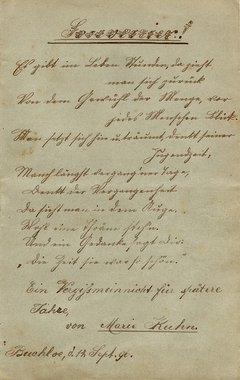 Souvenier!
Es gibt im Leben Stunden, da zieht
man sich zurück
Von dem Gewühl der Menge, vor
jedes Menschen Blick.
Man setzt sich hin u. träumt, denkt seiner
Jugendzeit,
Manch längst vergang'ner Tage,
Denkt der Vergangenheit
Da sieht man in dem Auge,
Wohl eine Thräne stehn.
Und ein Gedanke sagt dir:
"Die Zeit sie war so schön."
Ein Vergißmeinnicht für spätere
Jahre,
von Marie Kuhn.
Buchloe, d. 14. Sept. 91.